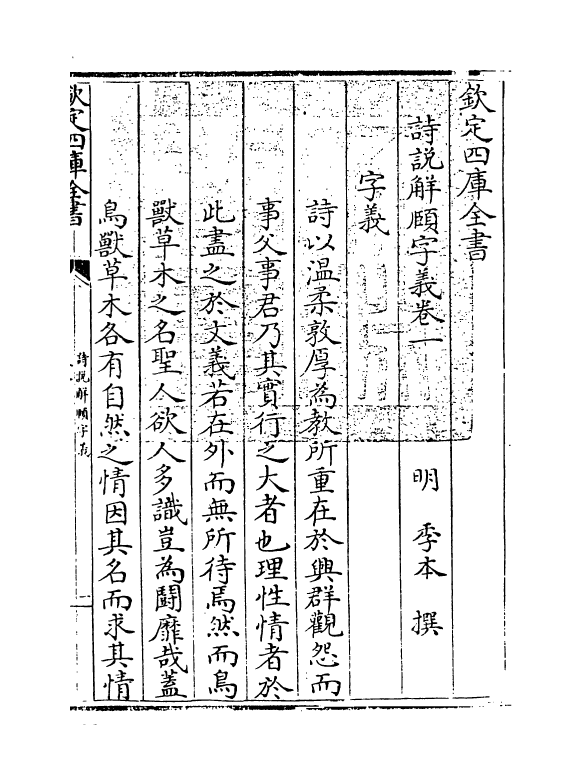 欽定四庫全書
詩說解頤字義卷一
明 季本 撰
字義
詩以温柔敦厚為教所重在於興群觀怨而
事父事君乃其實行之大者也理性情者於
此盡之於文義若在外而無所待焉然而鳥
獸草木之名聖人欲人多識豈為鬭靡哉蓋
鳥獸草木各有自然之情因其名而求其情
欽定四庫全書
詩說解頤字義
一